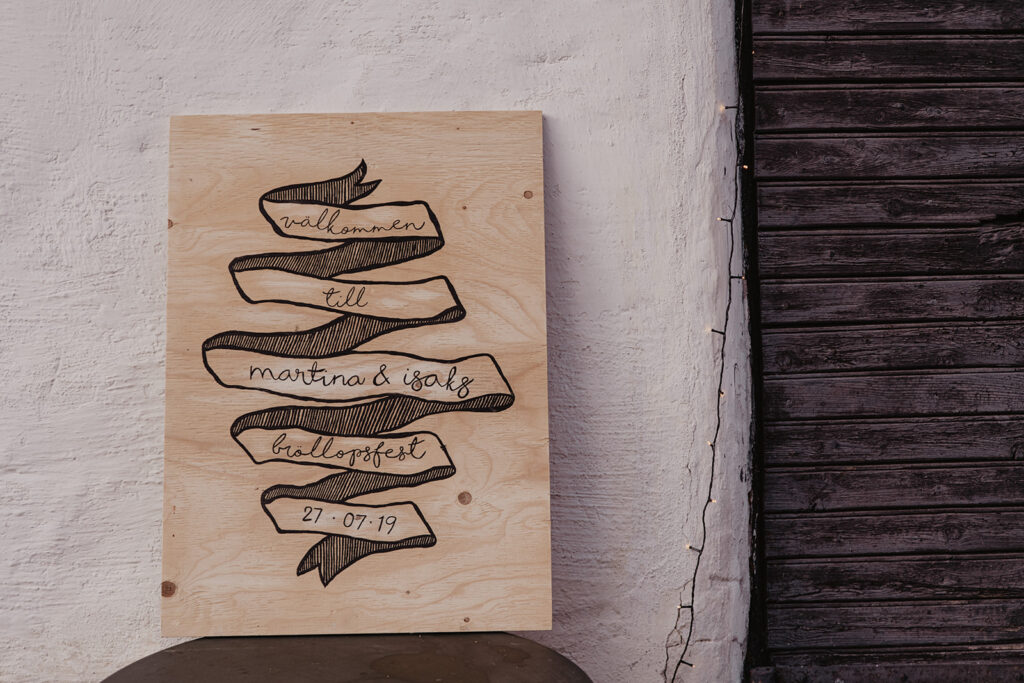 välkommen
till
martina & isaks
bröllopsfest
27 · 07 · 19